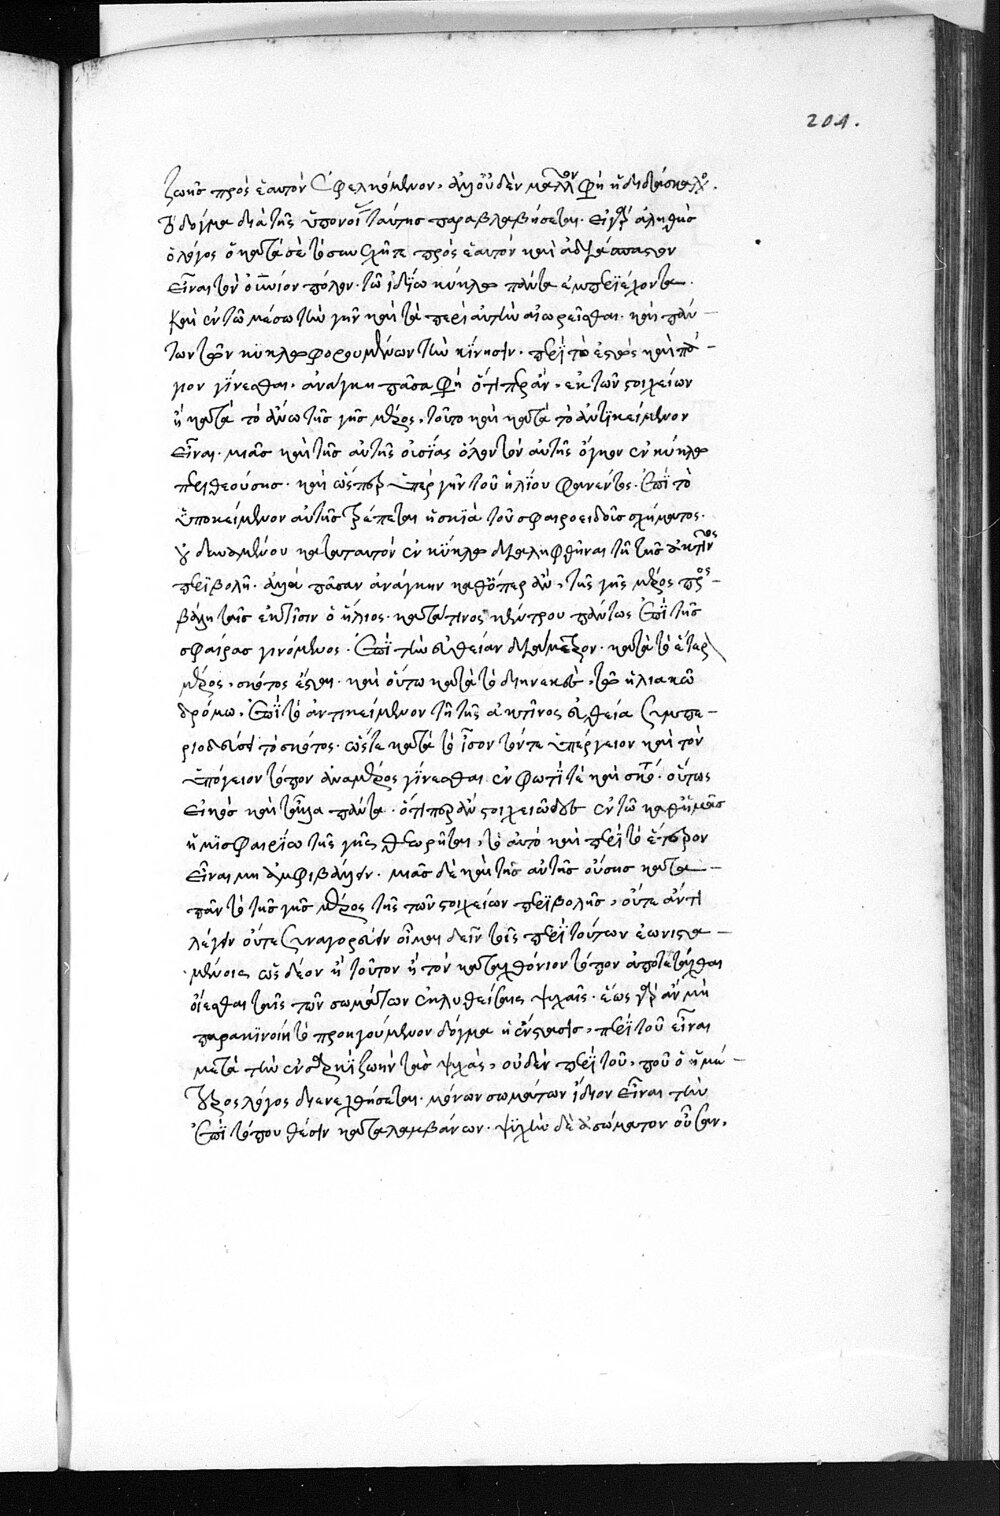 204.
ζωῆς πρὸς ἑαυτὸν ἐφελκόμενον. ἀλλ' οὐδὲν μᾶλλον φη ἡ διδάσκαλος.
τὸ δόγμα διὰ τῆς ὑπονοίας ταύτης παραβλαβήσεται. εἰ γὰρ ἀληθὴς
ὁ λόγος ὁ κατὰ σὲ τὸ συνεχῆ τε πρὸς ἑαυτὸν καὶ ἀδιάσπαστον
εἶναι τὸν οὐράνιον πόλον. τῷ ἰδίῳ κύκλῳ πάντα ἐμπεριέχοντα.
καὶ ἐν τῷ μέσῳ τὴν γῆν καὶ τὰ περὶ αὐτὴν αἰωρεῖσθαι. καὶ πάν
των τῶν κύκλῳ φορουμένων τὴν κίνησιν. περὶ τὸ ἑστὼς καὶ πά
γιον γίνεσθαι. ἀνάγκη πᾶσα φη ὅτι περ ἂν. ἑκ τῶν στοιχείων
ἢ κατὰ τὸ ἄνω τῆς γῆς μέρος, τοῦτο καὶ κατὰ τὸ ἀντικείμενον
εἶναι. μιᾶς καὶ τῆς αὐτῆς οὐσίας ὅλον τὸν αὐτῆς ὄγκον ἐν κύκλῳ
περιθεούσης. καὶ ὥσπερ ὑπὲρ γῆν τοῦ ἡλίου φανέντος. ἐπὶ τὸ
ὑποκείμενον αὐτῆς τρέπεται ἡ σκιὰ τοῦ σφαιροειδοῦς σχήματος.
οὐ δυναμένου κατὰ ταυτὸν ἐν κύκλῳ διαληφθῆναι τῇ τῆς ἀκτῖνος
περιβολῇ. ἀλλὰ πᾶσαν ἀνάγκην καθ' ὅπερ ἂν, τῆς γῆς μέρος προσ
βάλῃ ταῖς ἀκτῖσιν ὁ ἥλιος. κατά τινος κέντρου πάντως ἐπὶ τῆς
σφαίρας γινόμενος. ἐπὶ τὴν εὐθείαν διάμετρον. κατὰ τὸ ἕτερον
μέρος, σκότος ἔσται. καὶ οὕτω κατὰ τὸ διηνεκὲς, τῷ ἡλιακῷ
δρόμῳ, ἐπὶ τὸ ἀντικείμενον τῇ τῆς ἀκτῖνος εὐθείᾳ συμπε
ριοδεύει τὸ σκότος. ὥστε κατὰ τὸ ἶσον τόν τε ὑπέργειον καὶ τὸν
ὑπόγειον τόπον ἀναμέρος γίνεσθαι ἐν φωτί τὲ καὶ σκότῳ. οὕτως
εἰκὸς καὶ τἆλλα πάντα. ὅτι περ ἂν στοιχειωδῶς ἐν τῷ καθ' ἡμᾶς
ἡμισφαιρίῳ τῆς γῆς θεωρῆται, τὸ αὐτὸ καὶ περὶ τὸ ἕτερον
εἶναι μὴ ἀμφιβάλλειν. μιᾶς δὲ καὶ τῆς αὐτῆς οὔσης κατὰ
πᾶν τὸ τῆς γῆς μέρος τῆς τῶν στοιχείων περιβολῆς, οὔτε ἀντι
λέγειν οὔτε συναγορεύειν οἶμαι δεῖν τοῖς περὶ τούτων ἐωνιστα
μένοις ὡς δέον ἢ τοῦτον ἢ τὸν καταχθόνιον τόπον ἀποτετάχθαι
οἴεσθαι ταῖς τῶν σωμάτων ἐκλυθείσαις ψυχαῖς. ἕως γὰρ ἂν μὴ
παρακινοίη τὸ προηγούμενον δόγμα ἡ ἔνστασις, περὶ τοῦ εἶναι
μετὰ τὴν ἐν σαρκὶ ζωὴν τὰς ψυχὰς, οὐδὲν περὶ τοῦ, ποῦ ὁ ἡμέ
τερος λόγος διενεχθήσεται. μόνων σωμάτων ἴδιον εἶναι τὴν
ἐπὶ τόπου θέσιν καταλαμβάνων. ψυχὴν δὲ ἀσώματον οὖσαν,